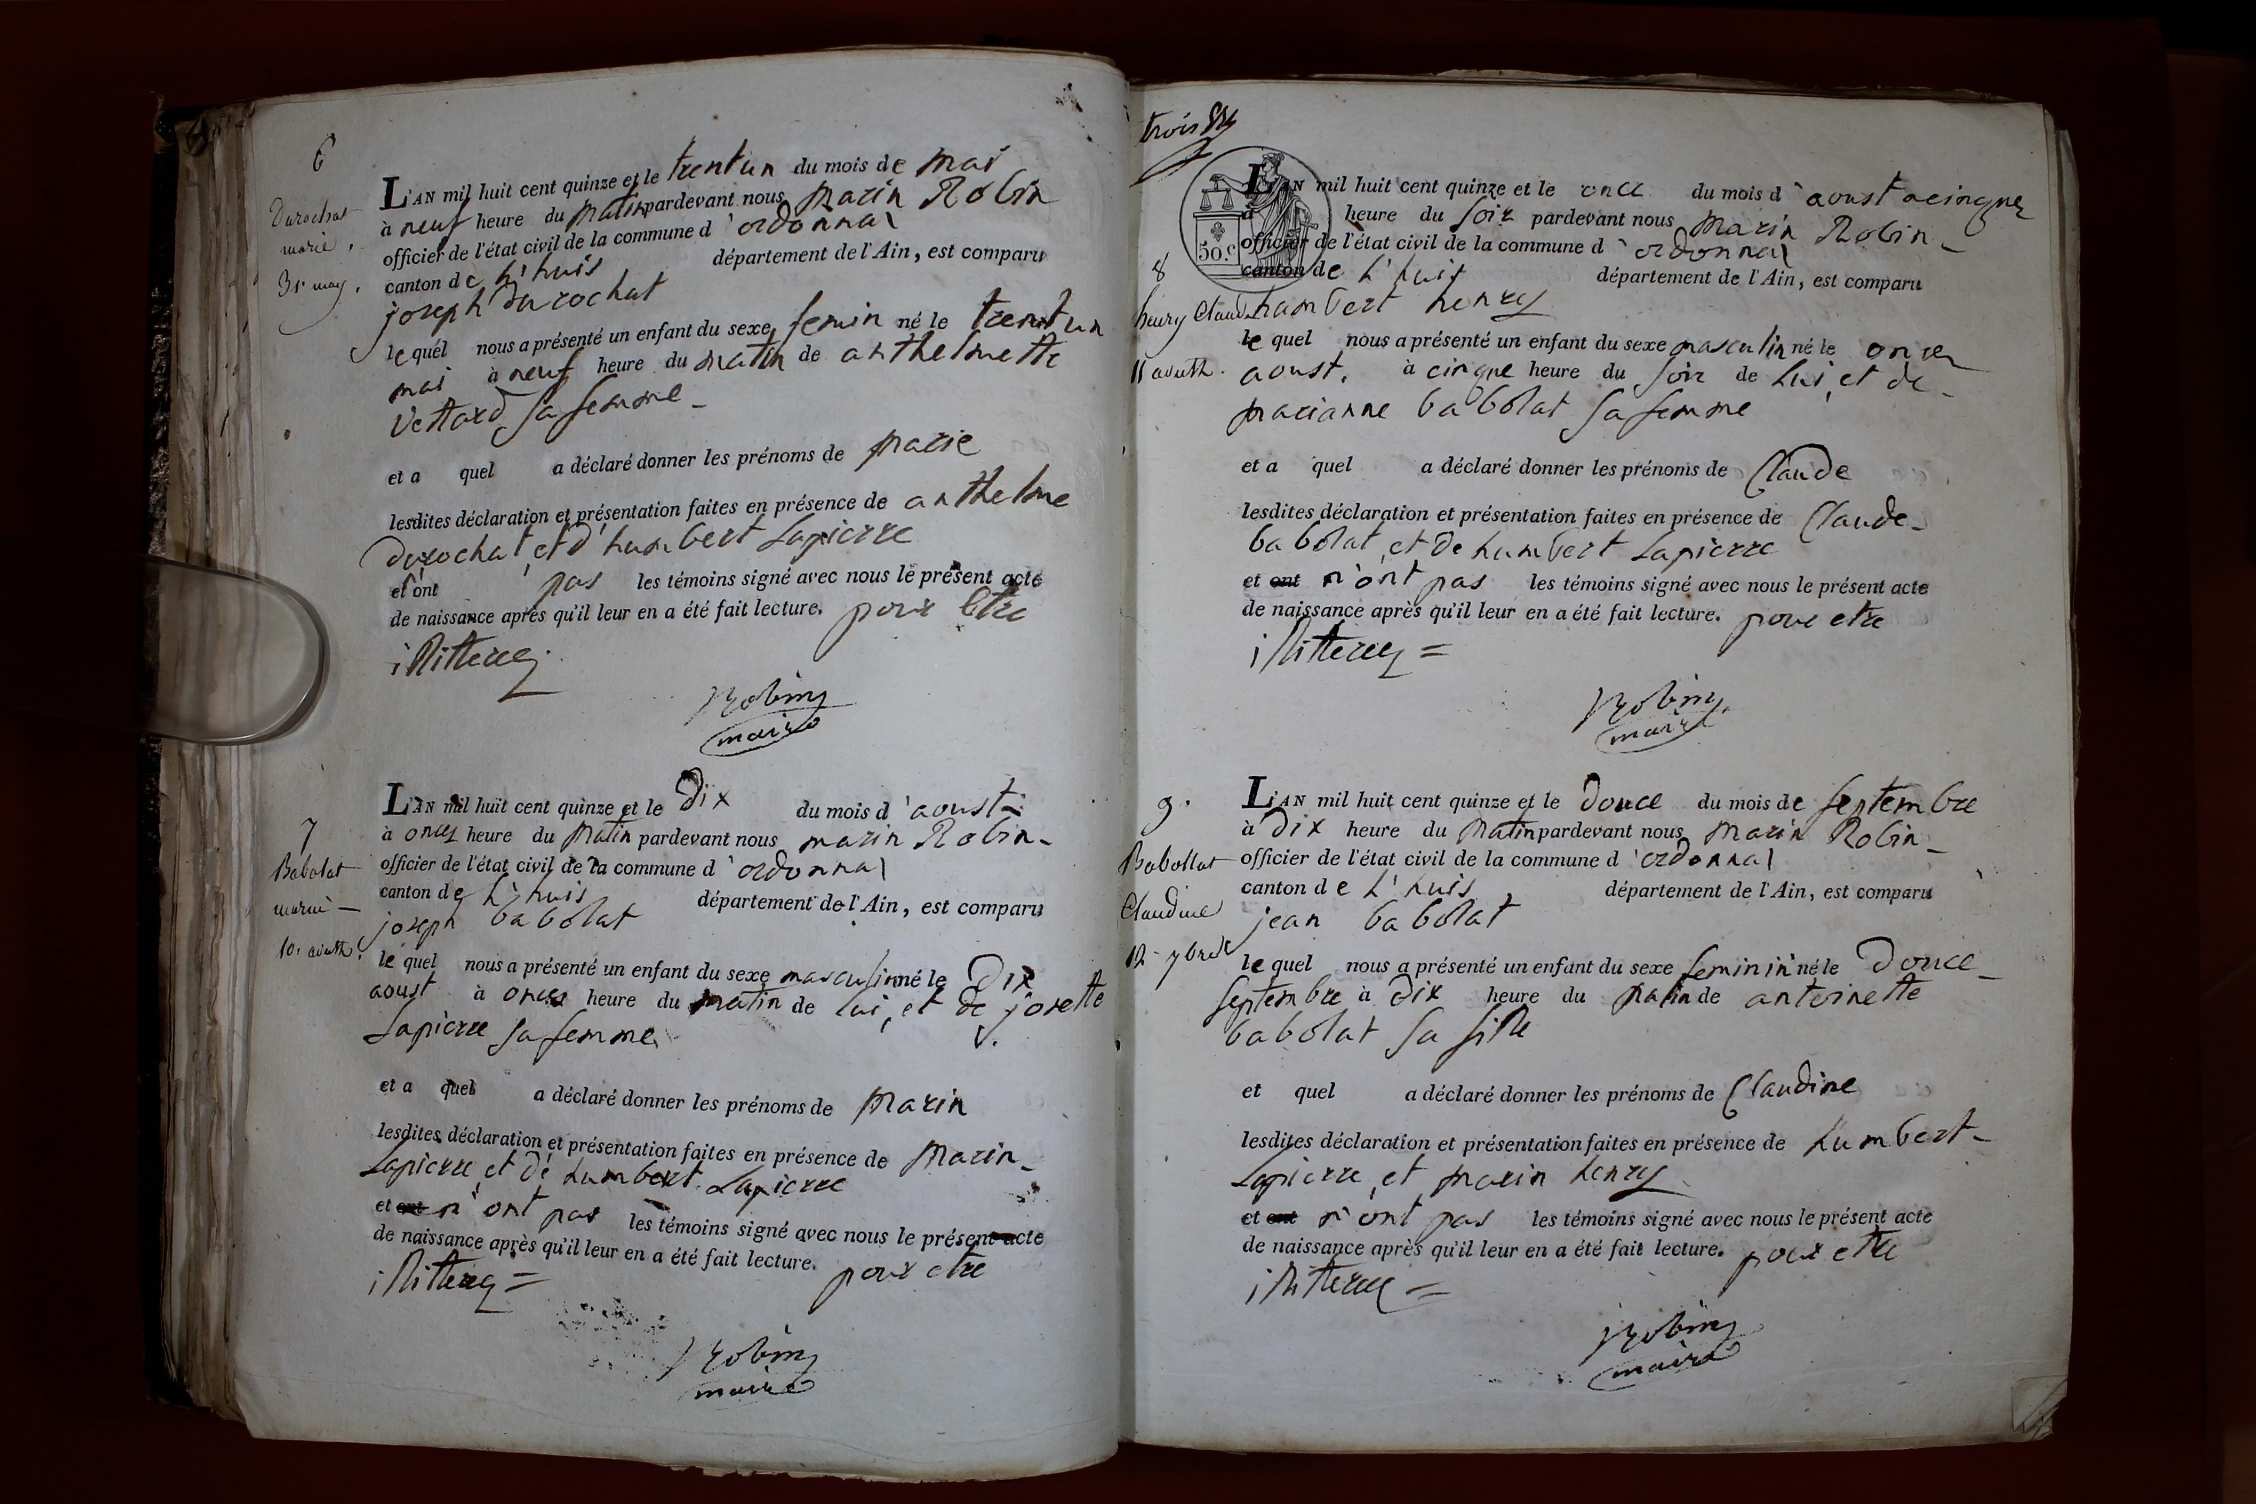 6
Durochat
marie
31 may
L'AN mil huit cent quinze et le trentun du mois de mai
à neuf heure du matin pardevant nous marin Robin
officier de l'état civil de la commune d'ordonnas
canton de L'huis département de l'Ain, est comparu
joseph Durochat
le quel nous a présenté un enfant du sexe femin né le trentun
mai à neuf heure du matin de anthelmette
Vettard sa femme
et a quel a déclaré donner les prénoms de marie
lesdites déclaration et présentation faites en présence de anthelme
durochat, et d'humbert Lapierre
et ont pas les témoins signé avec nous le présent acte
de naissance après qu'il leur en a été fait lecture. pour etre
illiterey
Robin
maire
7
Babolat
marin
10. aouth
L'AN mil huit cent quinze et le Dix du mois d'aoust
à onces heure du matin pardevant nous marin Robin
officier de l'état civil de la commune d'ordonnas
canton de L'huis département de l'Ain, est comparu
joseph babolat
le quel nous a présenté un enfant du sexe masculin né le Dix
aoust à onces heure du matin de lui, et de josette
Lapierre sa femme
et a quel a déclaré donner les prénoms de marin
lesdites déclaration et présentation faites en présence de marin
Lapierre, et de humbert Lapierre
et ont n'ont pas les témoins signé avec nous le présent acte
de naissance après qu'il leur en a été fait lecture. pour etre
illiterey =
Robin
maire
trois
50.c
8
henry Claude
11 aouth.
L'AN mil huit cent quinze et le once du mois d'aoust a cinque
à heure du soir pardevant nous marin Robin
officier de l'état civil de la commune d'ordonnas
canton de L'huis département de l'Ain, est comparu
humbert henry
le quel nous a présenté un enfant du sexe masculin né le onces
aoust, à cinque heure du soir de lui, et de
marianne babolat sa femme
et a quel a déclaré donner les prénoms de Claude
lesdites déclaration et présentation faites en présence de Claude
babolat, et de humbert Lapierre
et ont n'ont pas les témoins signé avec nous le présent acte
de naissance après qu'il leur en a été fait lecture. pour etre
illiterey =
Robin
maire
9.
Babollat
Claudine
12 7bre
L'AN mil huit cent quinze et le douce du mois de septembre
à Dix heure du matin pardevant nous marin Robin
officier de l'état civil de la commune d'ordonnas
canton de L'huis département de l'Ain, est comparu
jean babolat
le quel nous a présenté un enfant du sexe feminin né le Douce
septembre à Dix heure du matin de antoinette
babolat sa fille
et quel a déclaré donner les prénoms de Claudine
lesdites déclaration et présentation faites en présence de humbert
Lapierre, et marin henry
et ont n'ont pas les témoins signé avec nous le présent acte
de naissance après qu'il leur en a été fait lecture. pour etre
illiterey =
Robin
maire